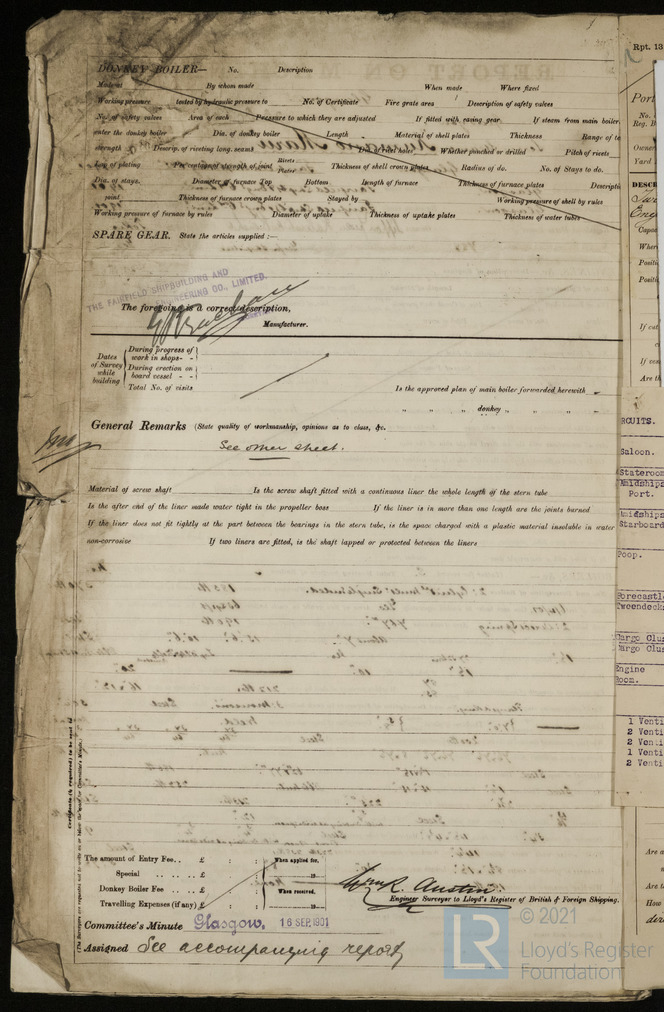 DONKEY BOILER— No. Description
Material By whom made When made Where fixed
Working pressure tested by hydraulic pressure to No. of Certificate Fire grate area Description of safety valves
No. of safety valves Area of each Pressure to which they are adjusted If fitted with easing gear If steam from main boilers
enter the donkey boiler Dia. of donkey boiler Length Material of shell plates Thickness Range of te
strength Descrip. of riveting long. seams Dia. of rivet holes Whether punched or drilled Pitch of rivets
Lap of plating Per centage of strength of joint Rivets Plates Thickness of shell crown plates Radius of do. No. of Stays to do.
Dia. of stays. Diameter of furnace Top Bottom Length of furnace Thickness of furnace plates Descripti
joint Thickness of furnace crown plates Stayed by Working pressure of shell by rules
Working pressure of furnace by rules Diameter of uptake Thickness of uptake plates Thickness of water tubes
SPARE GEAR. State the articles supplied :—
THE FAIRFIELD SHIPBUILDING AND
ENGINEERING CO., LIMITED.
The foregoing is a correct description,
Manufacturer.
Dates of Survey while building
During progress of work in shops - -
During erection on board vessel - - -
Total No. of visits
Is the approved plan of main boiler forwarded herewith
" " " donkey " " "
General Remarks (State quality of workmanship, opinions as to class, &c.
See other sheet.
Material of screw shaft Is the screw shaft fitted with a continuous liner the whole length of the stern tube
Is the after end of the liner made water tight in the propeller boss If the liner is in more than one length are the joints burned
If the liner does not fit tightly at the part between the bearings in the stern tube, is the space charged with a plastic material insoluble in water
non-corrosive If two liners are fitted, is the shaft lapped or protected between the liners
Certificate (if required) to be sent to
(The Surveyors are requested not to write on or below the space for Committee's Minute.)
The amount of Entry Fee . . £ : : When applied for,
Special . . £ : : 19
Donkey Boiler Fee . . £ : : When received,
Travelling Expenses (if any) £ : : 19
Wm R. Austin
Engineer Surveyor to Lloyd's Register of British & Foreign Shipping.
Committee's Minute Glasgow. 16 SEP.1901
Assigned See accompanying report
Rpt. 13
Port
No.
Reg. B
Owner
Yard
DESCR
Capac
Where
Positi
Positi
If cut
If ves
Are th
RCUITS.
Saloon.
Stateroom
Amidships
Port.
Amidships
Starboard
Poop.
Forecastle
Tweendeck
Cargo Clus
Cargo Clus
Engine
Room.
1 Venti
2 Venti
2 Venti
1 Venti
2 Venti
Are
Are t
How
dire
© 2021
LR
Lloyd's Register
Foundation